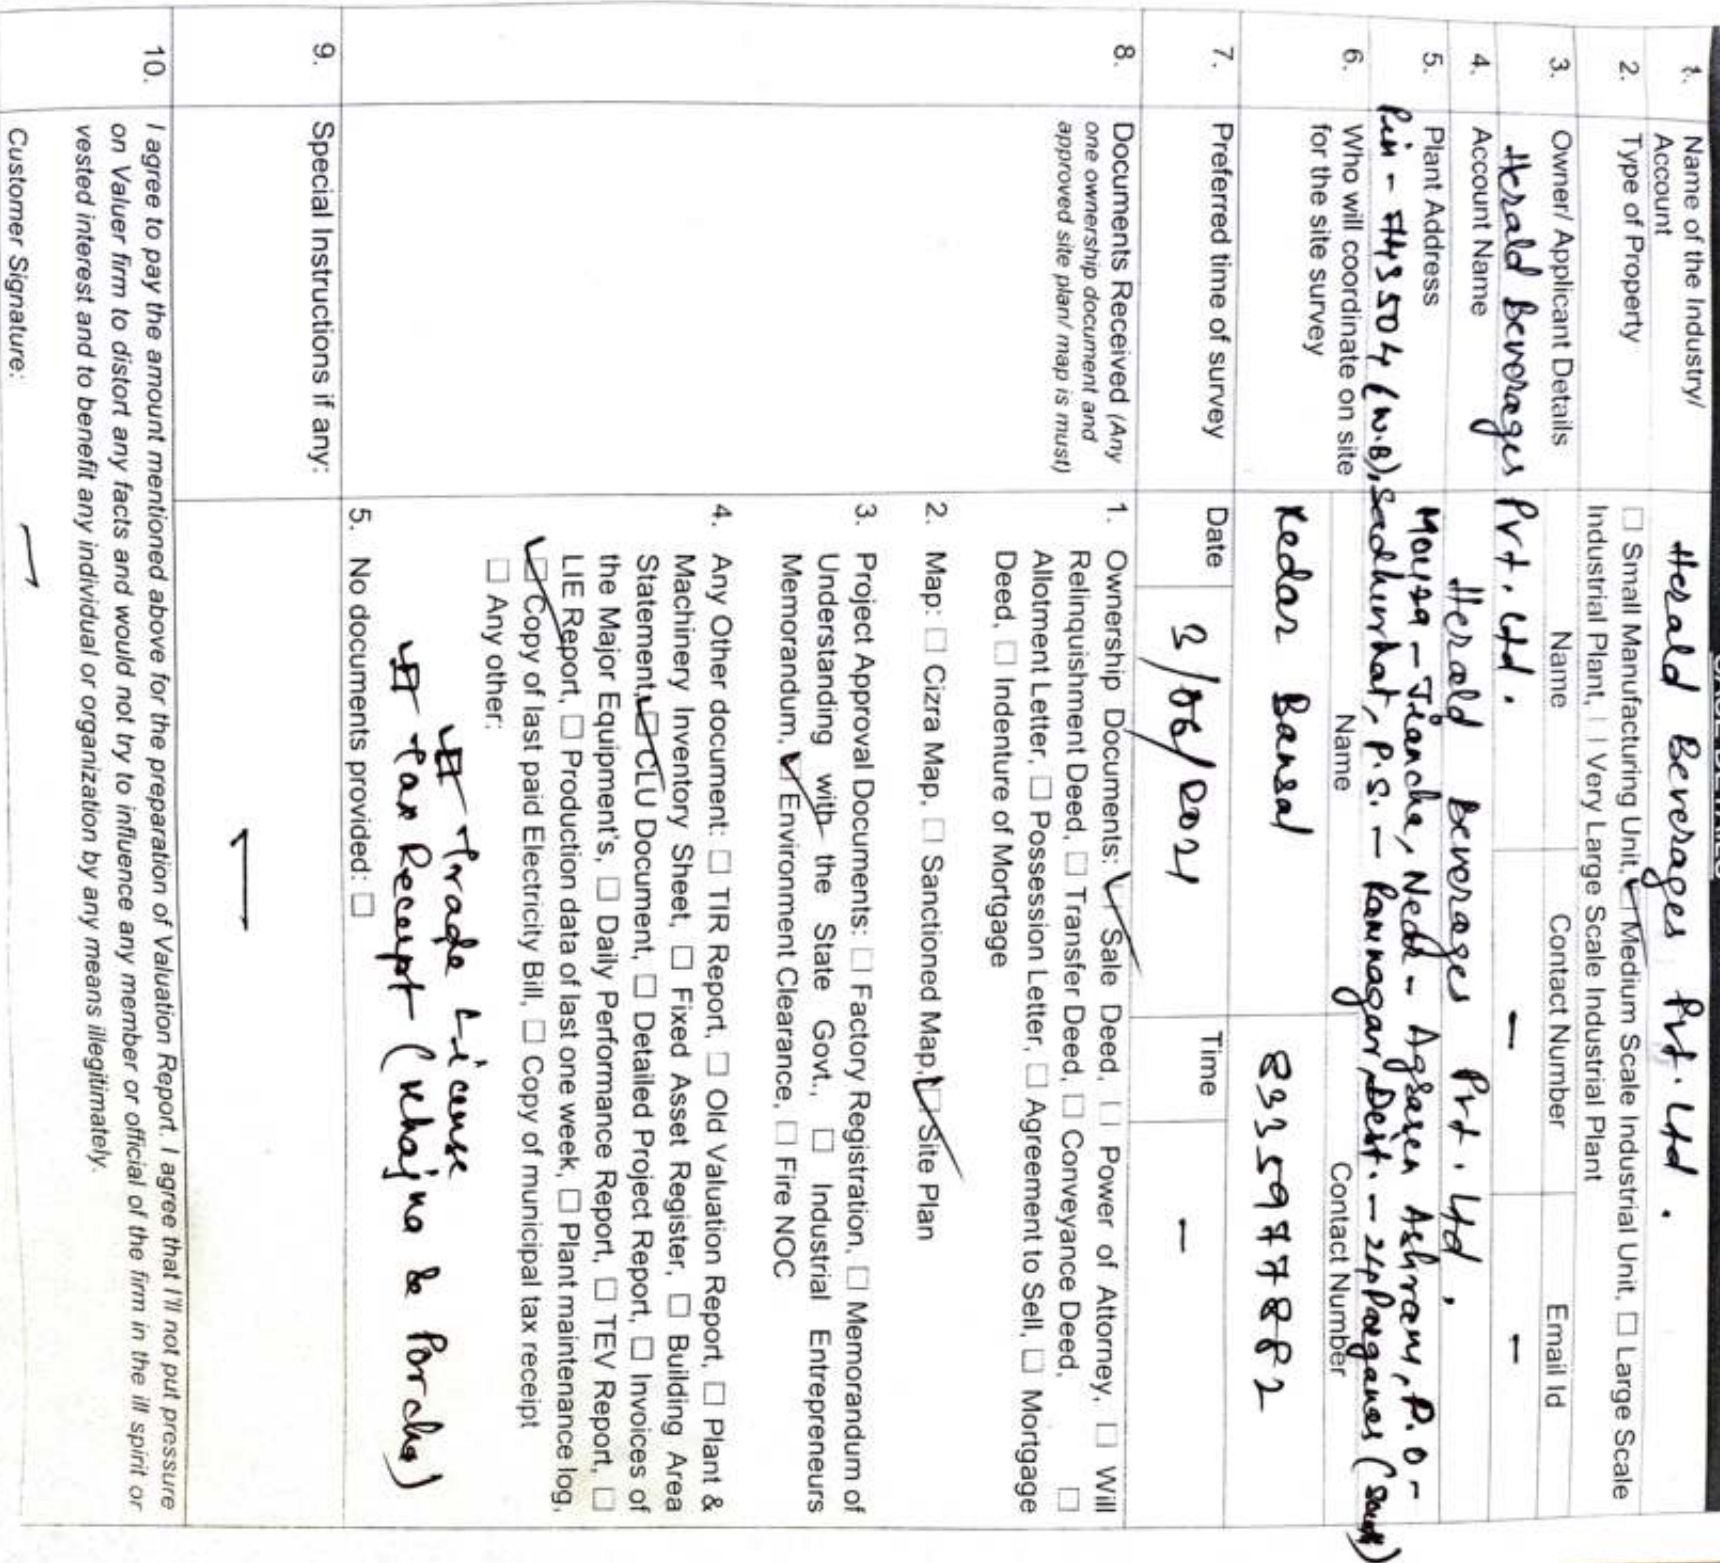 CASE DETAILS
1. Name of the Industry/ Account
Herald Beverages Pvt. Ltd.
2. Type of Property
☐ Small Manufacturing Unit, ☑ Medium Scale Industrial Unit, ☐ Large Scale
Industrial Plant, ☐ Very Large Scale Industrial Plant
3. Owner/ Applicant Details
Name Contact Number Email Id
Herald Beverages Pvt. Ltd. — —
4. Account Name
Herald Beverages Pvt. Ltd.
5. Plant Address
Mouza - Tiencha, Near - Agrasen Ashram, P.O -
Pin - 743504 (W.B), Sadhurhat, P.S. - Ramnagar, Dist. - 24 Parganas (South)
6. Who will coordinate on site
for the site survey
Name Contact Number
Kedar Bansal 8335977882
7. Preferred time of survey
Date 3/06/2021 Time —
8. Documents Received (Any
one ownership document and
approved site plan/ map is must)
1. Ownership Documents: ☑ Sale Deed, ☐ Power of Attorney, ☐ Will
Relinquishment Deed, ☐ Transfer Deed, ☐ Conveyance Deed, ☐
Allotment Letter, ☐ Possession Letter, ☐ Agreement to Sell, ☐ Mortgage
Deed, ☐ Indenture of Mortgage
2. Map: ☐ Cizra Map, ☐ Sanctioned Map, ☑ Site Plan
3. Project Approval Documents: ☐ Factory Registration, ☐ Memorandum of
Understanding with the State Govt., ☐ Industrial Entrepreneurs
Memorandum, ☑ Environment Clearance, ☐ Fire NOC
4. Any Other document: ☐ TIR Report, ☐ Old Valuation Report, ☐ Plant &
Machinery Inventory Sheet, ☐ Fixed Asset Register, ☐ Building Area
Statement, ☑ CLU Document, ☐ Detailed Project Report, ☐ Invoices of
the Major Equipment's, ☐ Daily Performance Report, ☐ TEV Report, ☐
LIE Report, ☐ Production data of last one week, ☐ Plant maintenance log,
☑ Copy of last paid Electricity Bill, ☐ Copy of municipal tax receipt
☐ Any other:
☑ Trade License
☑ Tax Receipt (Khajna & Porcha)
5. No documents provided: ☐
9. Special Instructions if any:
—
10. I agree to pay the amount mentioned above for the preparation of Valuation Report. I agree that I'll not put pressure
on Valuer firm to distort any facts and would not try to influence any member or official of the firm in the ill spirit or
vested interest and to benefit any individual or organization by any means illegitimately.
Customer Signature: —